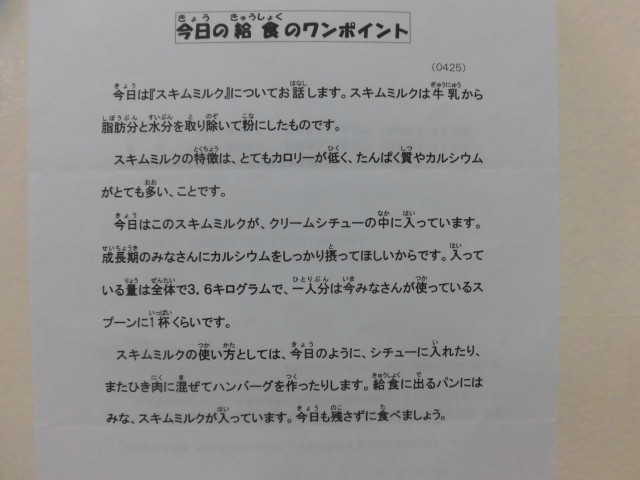 今日の給食のワンポイント
(0425)
今日は『スキムミルク』についてお話します。スキムミルクは牛乳から
脂肪分と水分を取り除いて粉にしたものです。
スキムミルクの特徴は、とてもカロリーが低く、たんぱく質やカルシウム
がとても多い、ことです。
今日はこのスキムミルクが、クリームシチューの中に入っています。
成長期のみなさんにカルシウムをしっかり摂ってほしいからです。入って
いる量は全体で3.6キログラムで、一人分は今みなさんが使っているス
プーンに1杯くらいです。
スキムミルクの使い方としては、今日のように、シチューに入れたり、
またひき肉に混ぜてハンバーグを作ったりします。給食に出るパンには
みな、スキムミルクが入っています。今日も残さずに食べましょう。